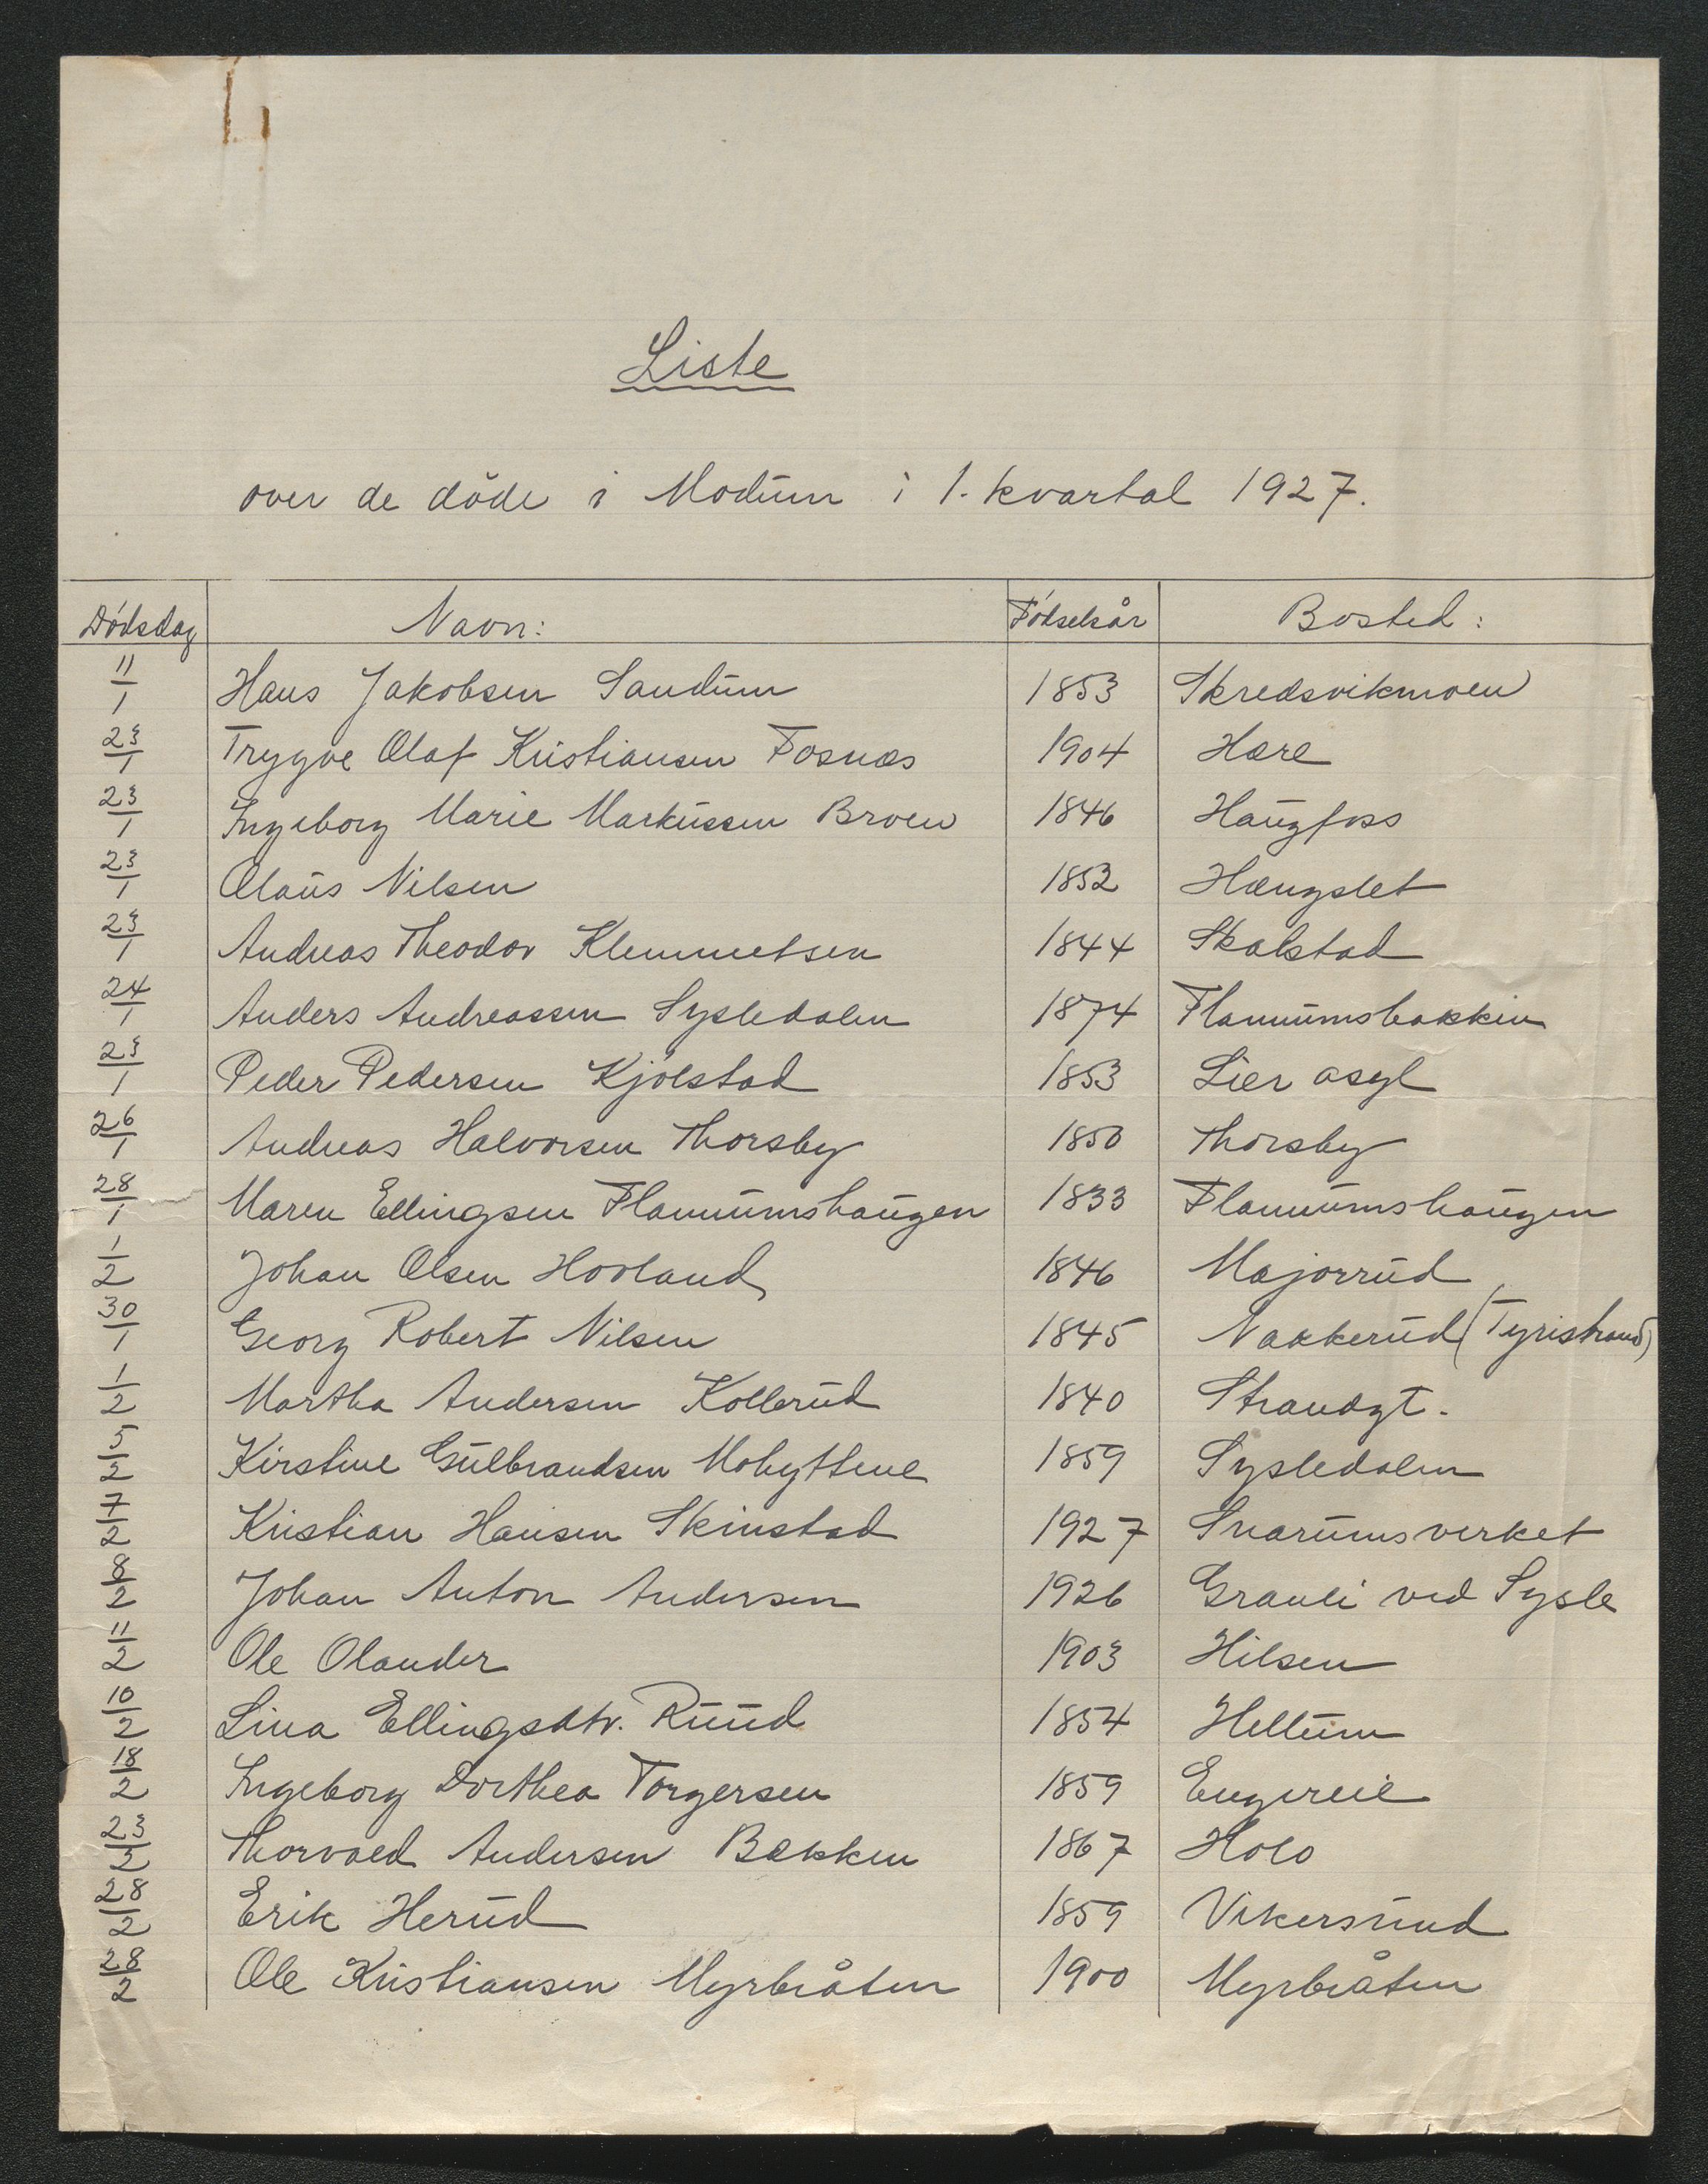 Liste
over de döde i Modum i 1. kvartal 1927.
Dödsdag Navn: Fötselsår Bosted:
11/1 Hans Jakobsen Sandum 1853 Skredsvikmoen
23/1 Trygve Olaf Kristiansen Fosnæs 1904 Hære
23/1 Ingeborg Marie Markussen Broen 1846 Haugfoss
23/1 Olaus Nilsen 1852 Hængslet
23/1 Andreas Theodor Klemmetsen 1844 Skalstad
24/1 Anders Andreassen Sysledalen 1874 Flannumsbakken
23/1 Peder Pedersen Kjölstad 1853 Lier asyl
26/1 Andreas Halvorsen Thorsby 1850 Thorsby
28/1 Maren Ellingsen Flannumshaugen 1833 Flannumshaugen
1/2 Johan Olsen Hovland 1846 Majorrud
30/1 Georg Robert Nilsen 1845 Nakkerud (Tyristrand)
1/2 Martha Andersen Kollerud 1840 Strandgt.
5/2 Kirstine Gulbrandsen Mohyttene 1859 Sysledalen
7/2 Kristian Hansen Skinstad 1927 Snarumsverket
8/2 Johan Anton Andersen 1926 Granli ved Sysle
11/2 Ole Olander 1903 Hilsen
10/2 Lina Ellingsdtr. Ruud 1854 Hellum
18/2 Ingeborg Dorthea Torgersen 1859 Engereie
23/2 Thorvald Andersen Bækken 1867 Holo
28/2 Erik Herud 1859 Vikersund
28/2 Ole Kristiansen Myrbråten 1900 Myrbråten